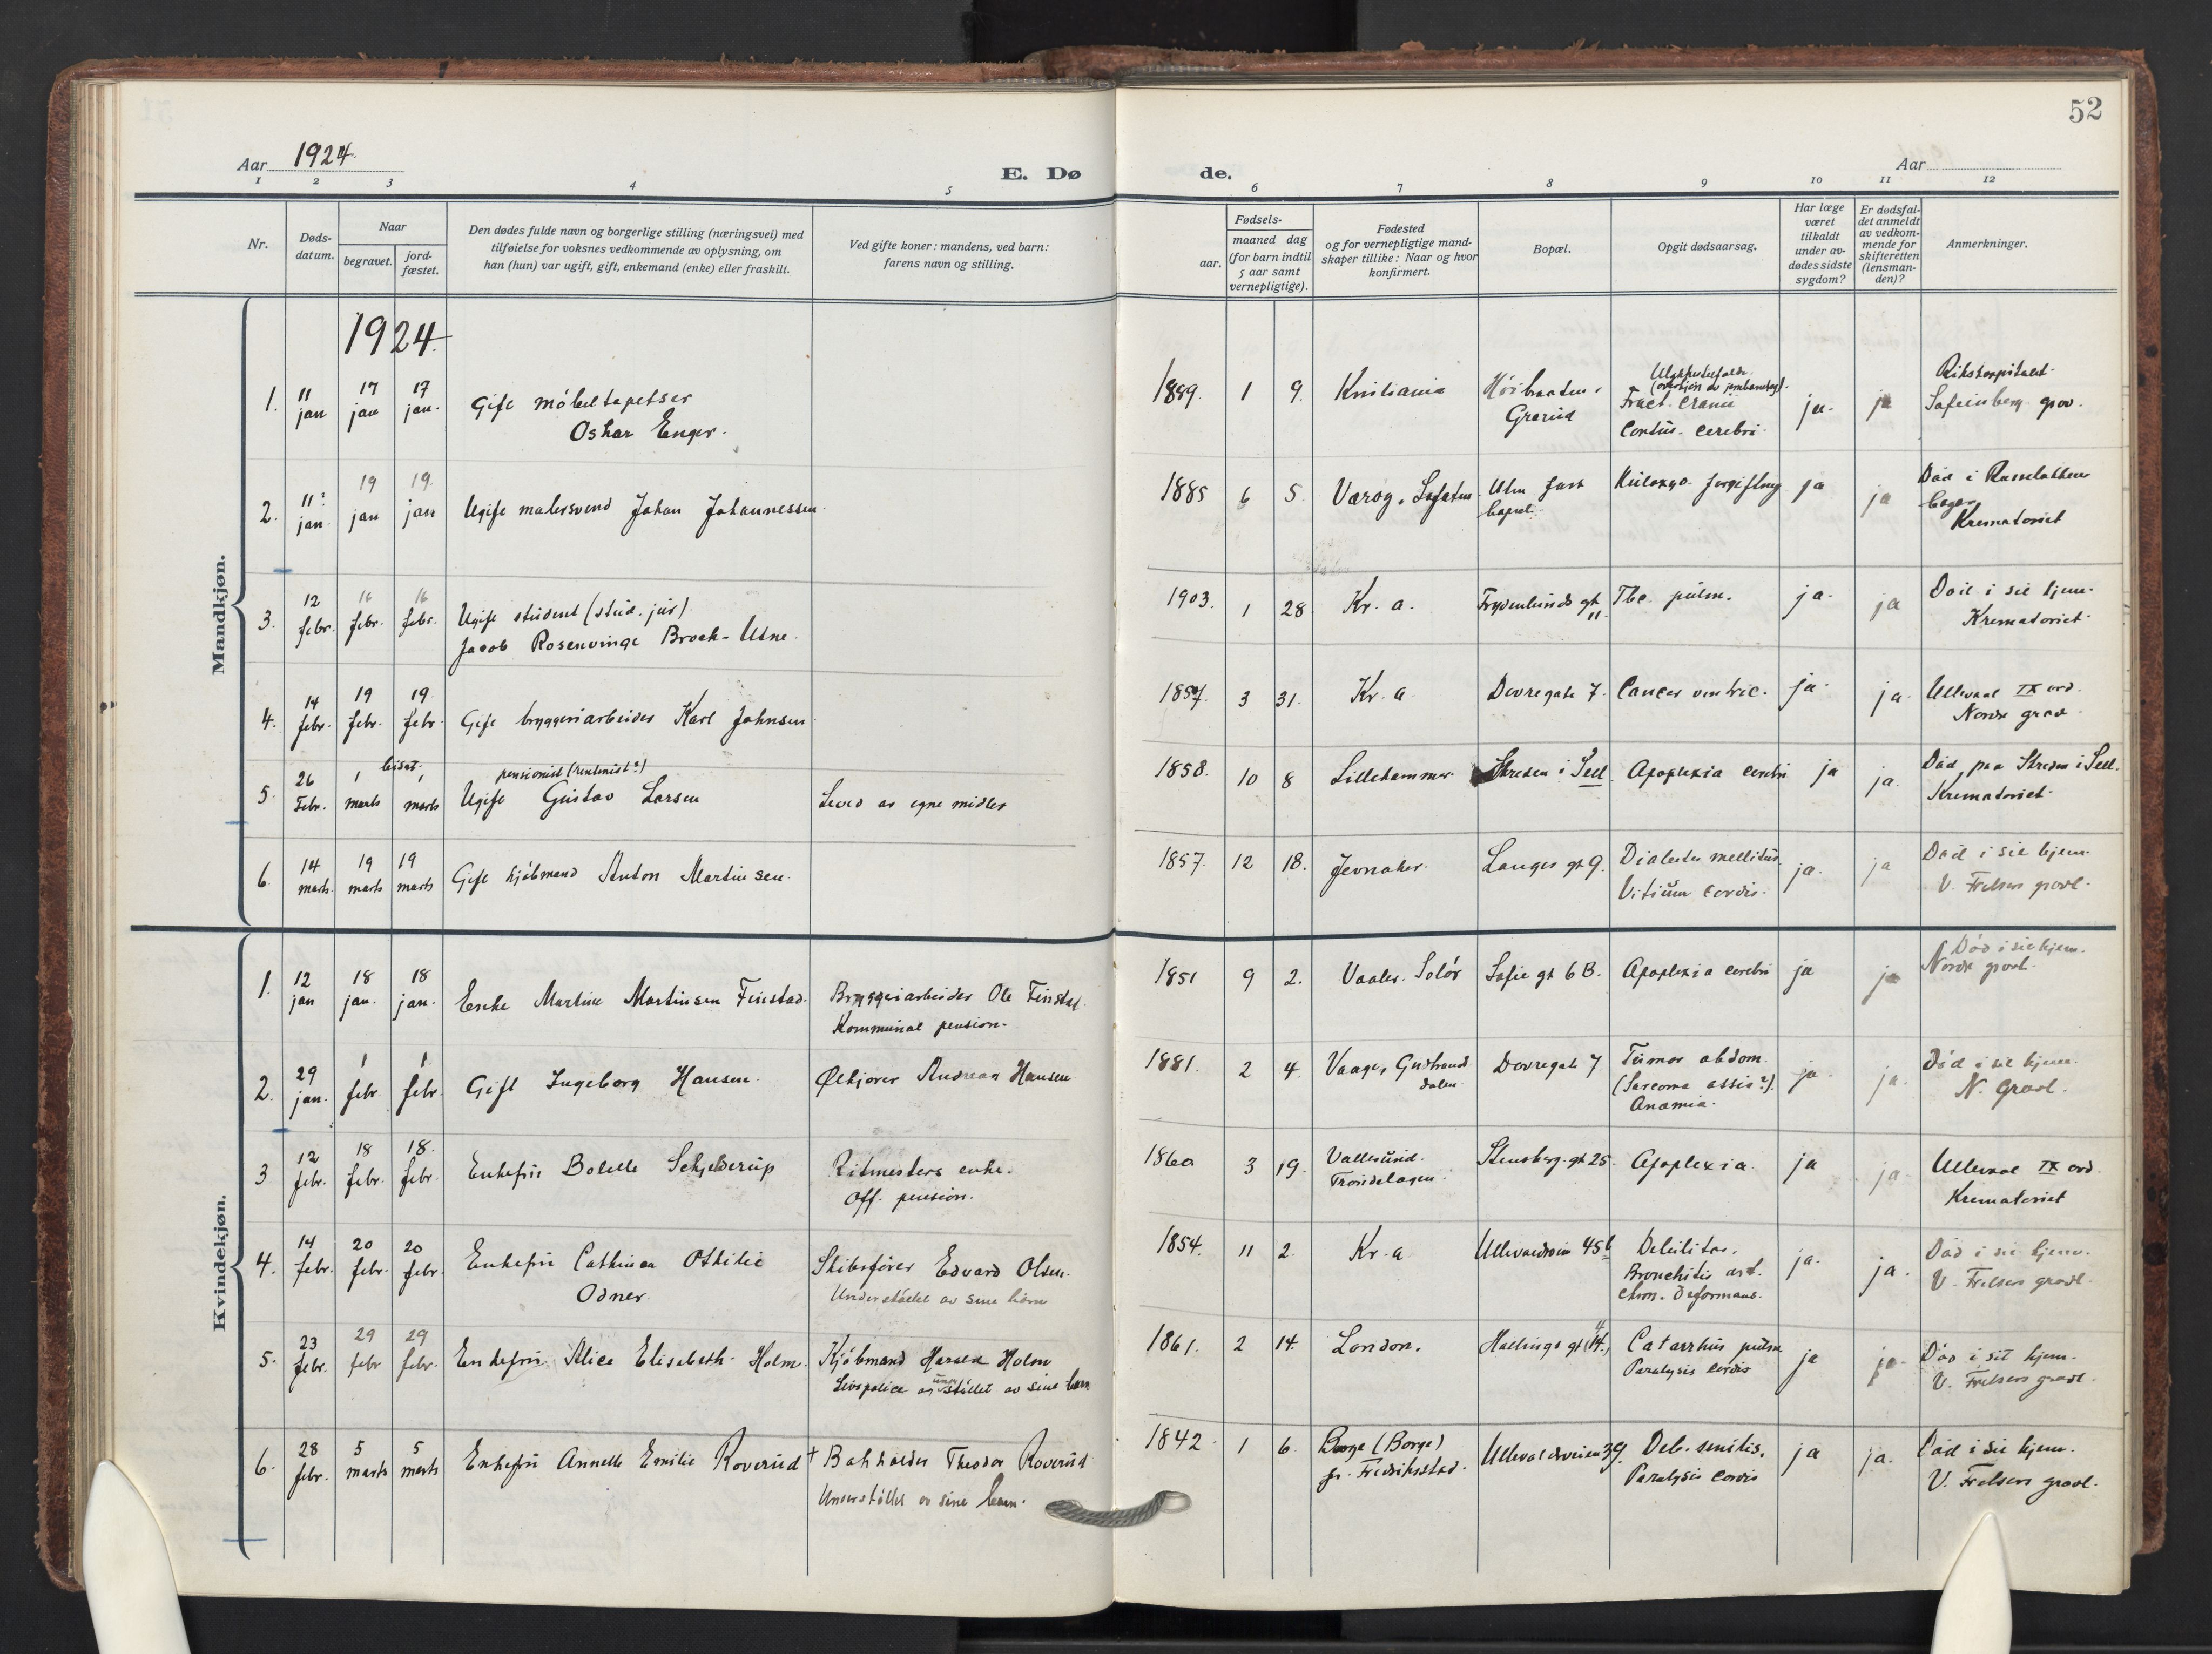 52
Aar 1924.
E. Dø de.
Aar
1 2 3 4 5 6 7 8 9 10 11 12
Nr.
Døds-
datum.
Naar
begravet.
jord-
fæstet.
Den dødes fulde navn og borgerlige stilling (næringsvei) med
tilføielse for voksnes vedkommende av oplysning, om
han (hun) var ugift, gift, enkemand (enke) eller fraskilt.
Ved gifte koner: mandens, ved barn:
farens navn og stilling.
Fødsels-
aar.
maaned dag
(for barn indtil
5 aar samt
vernepligtige).
Fødested
og for vernepligtige mand-
skaper tillike: Naar og hvor
konfirmert.
Bopæl.
Opgit dødsaarsag.
Har læge
været
tilkaldt
under av-
dødes sidste
sygdom?
Er dødsfal-
det anmeldt
av vedkom-
mende for
skifteretten
(lensman-
den)?
Anmerkninger.
Mandkjøn.
1924.
1. 11 jan 17 jan 17 jan.
Gift möbeltapetser
Oskar Enger.
1889. 1 9. Kristiania
Grorud
Ulykkestilfælde
Fract. cranii
Contus. cerebri.
ja. ja
Rikshospitalet.
grav.
2. 11: jan 19 jan 19. jan
Ugift malersvend Johan Johannessen
1885 6 5. Værøy, Lofoten
Uten fast
bopæl.
Kuloxyd forgiftning ja ja
Død i
Krematoriet
3. 12 febr. 16 febr. 16 febr.
Ugift student (stud. jur)
Jacob Rosenvinge Broch-Utne.
1903. 1 28 Kr. a. Frydenlunds gt 11 Tbc. pulm. ja. ja
Död i sit hjem.
Krematoriet.
4. 14 febr. 19 febr. 19. febr.
Gift bryggeriarbeider Karl Johnsen
1857. 3 31. Kr. a Dovregate 7. Cancer ventric. ja. ja.
Ullevaal IX avd.
Nordre grav.
5. 26 Febr. 1 marts bisat. 1 marts
pensionist (rentenist?)
Ugift Gustav Larsen
Leved av egne midler
1858. 10 8 Lillehammer i Sell Apoplexia cerebri ja ja.
Död paa i Sell.
Krematoriet.
6. 14 marts. 19 marts 19 marts
Gift kjöbmand Anton Martinsen.
1857. 12 18. Jevnaker. Langes gt 9.
Diabetes mellitus
Vitium cordis.
ja. ja
Död i sit hjem.
V. Frelsers gravl.
Kvindekjøn.
1. 12 jan 18 jan. 18 jan.
Enke Martine Martinsen Finstad.
Bryggeriarbeider Ole Finstad.
Kommunal pension.
1851 9 2. Vaaler. Solör Sofie gt 6 B. Apoplexia cerebri ja ja
Död i sit hjem.
Nordre gravl.
2. 29 jan. 1 febr. 1. febr.
Gift Ingeborg Hansen.
Ølkjører Andreas Hansen
1881. 2 4. Vaage, Gudbrands
dalen
Dovregate 7
Tumor abdom.
(Sarcoma ossis?).
Anæmia.
ja. ja.
Död i sit hjem.
N. Gravl.
3 12 febr. 18 febr. 18. febr.
Enkefru Bolette Schjelderup
Ritmesters enke.
Off. pension.
1860 3 19. Vallersund.
Trøndelagen.
Stensberg. gt 25. Apoplexia. ja ja
Ullevaal IX avd.
Krematoriet
4. 14 febr. 20 febr. 20 febr.
Enkefru Cathinca Othilie
Odner.
Skibsfører Edvard Olsen.
Understöttet av sine børn
1854. 11 2. Kr. a Ullevaalsvein 45 b
Debilitas.
Bronchitis art.
chron. deformans.
ja. ja.
Död i sit hjem.
V. Frelsers gravl.
5. 23 febr. 29 febr 29 febr.
Enkefru Alice Elisabeth Holm.
Kjöbmand Harald Holm
Livspolice og understöttet av sine børn
1861. 2 14. London. Hallings gt
Catarrhus pulm.
Paralysis cordis
ja ja
Död i sit hjem.
V. Frelsers gravl.
6. 28 febr. 5 marts 5 marts
Enkefru Annette Emilie Roverud
† Bokholder Theodor Roverud
Understöttet av sine børn.
1842. 1 6. Borge (Borge)
pr. Fredriksstad.
Ullevaalsveien 39.
Deb. senilis.
Paralysis cordis
ja ja.
Död i sit hjem.
V. Frelsers gravl.